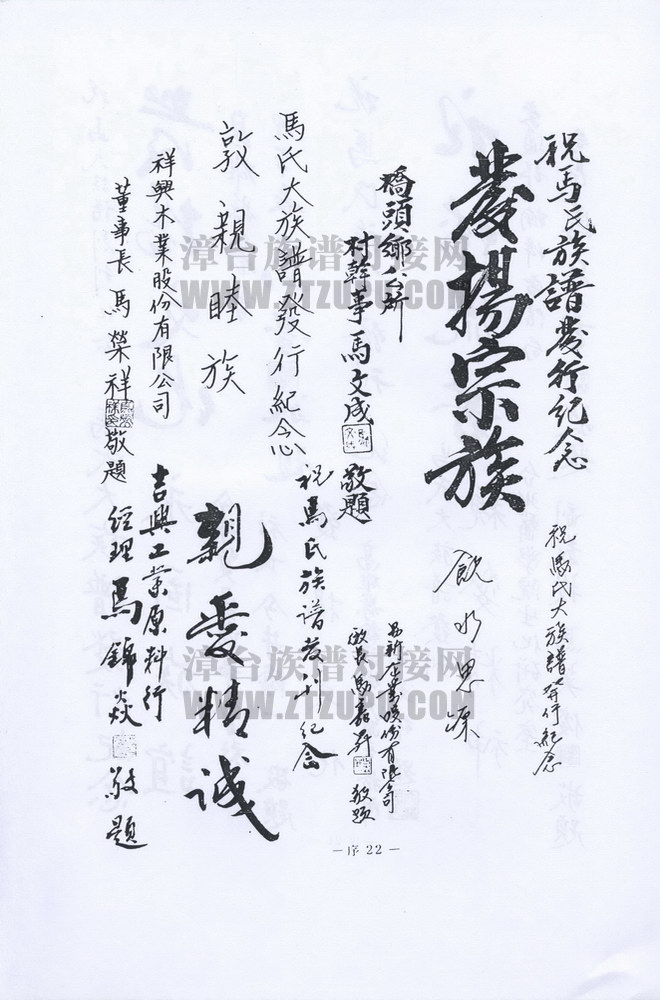 祝馬氏族譜發行紀念
發揚宗族
橋頭鄉公所
村幹事馬文成
敬題
馬氏大族譜發行紀念
敦親睦族
祥興木業股份有限公司
董事長 馬榮祥 敬題
祝馬氏大族譜發行紀念
飲水思源
業股份有限公司
敬題
祝馬氏族谱发刊纪念
親愛精誠
吉興工業原料行
經理 馬錦焱 敬題
漳台族谱对接网
WWW.ZTZUPU.COM
漳台族谱对接网
WWW.ZTZUPU.COM
—序22—